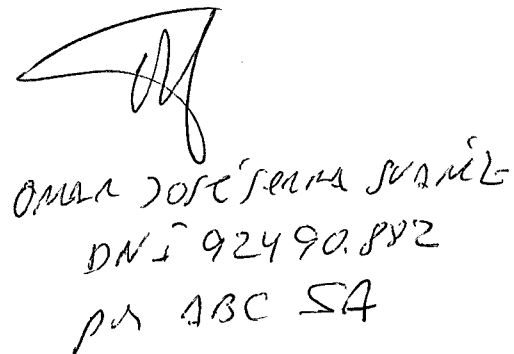 OMAR JOSÉ SERRA SUAREZ
DNI 92490.882
por ABC SA